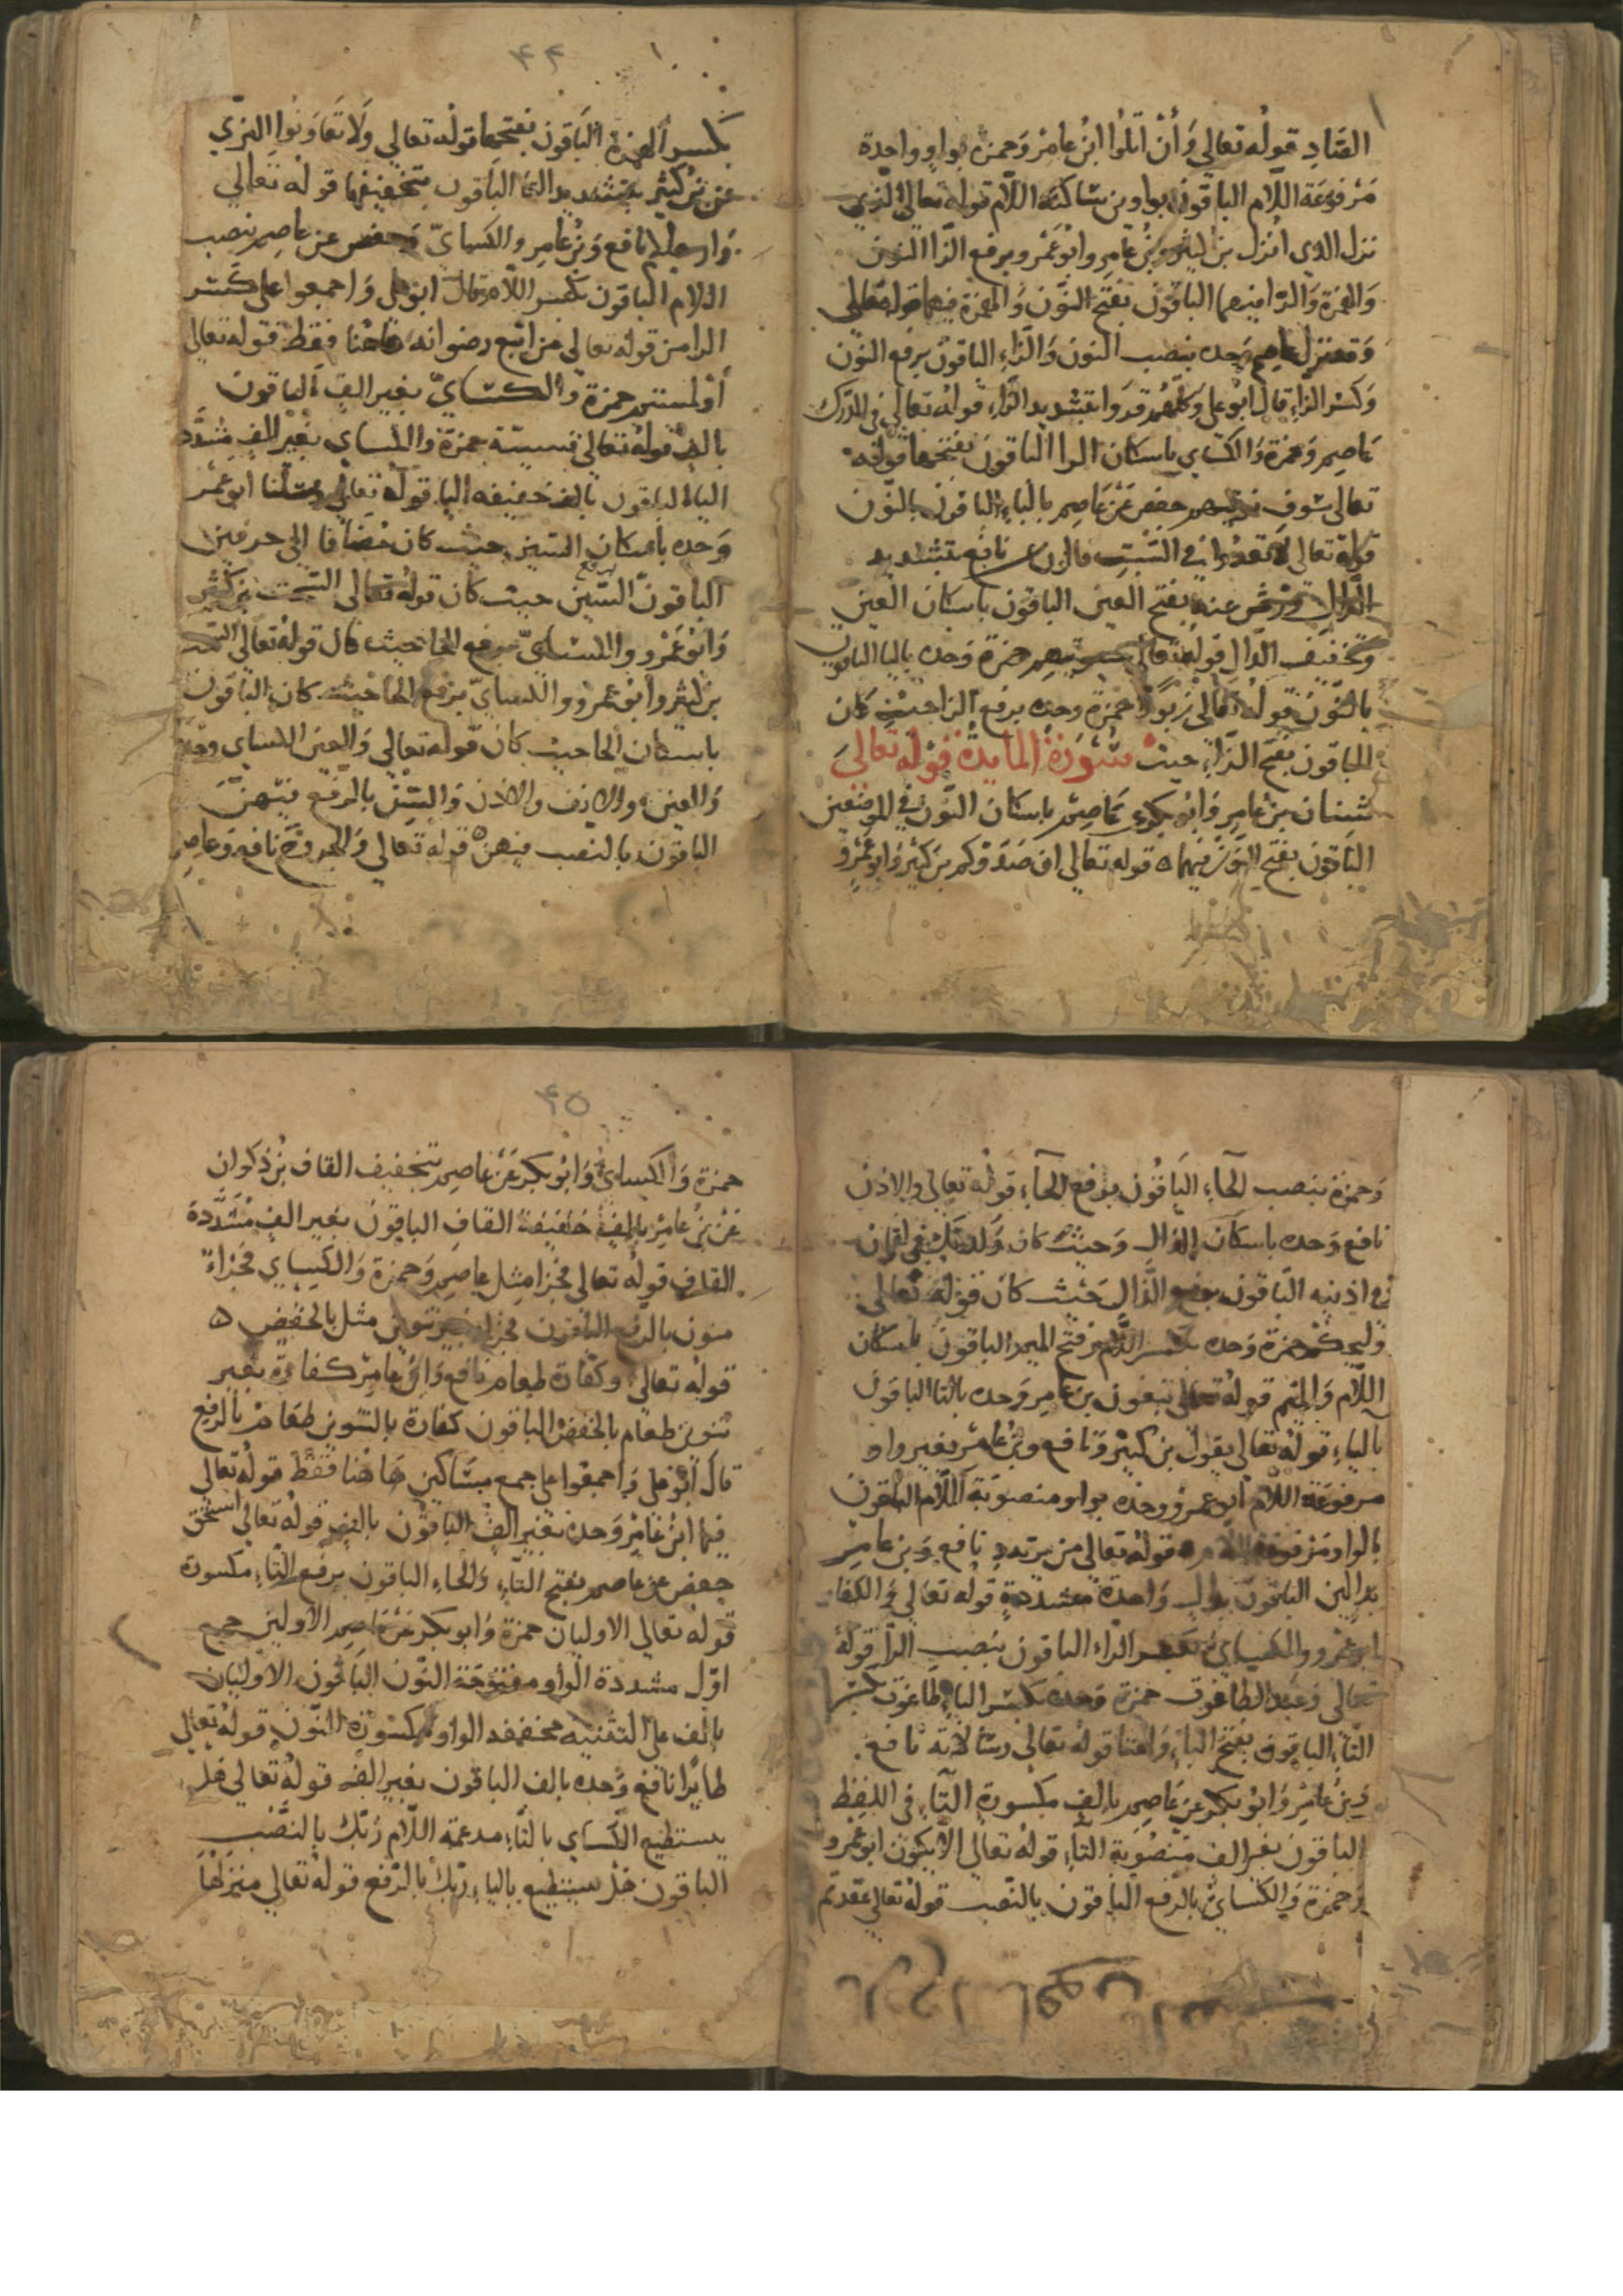 الصّادِ قولُه تعالي وَأنْ تَلُوا ابنُ عامرْ وَحمزة بواوٍ واحدة
مَرْفوعَة اللّام الباقونَ بواوين سَاكنَة اللّام قولُه تعالي الّذي
نزل الذي انزل بنُ كثير وبنُ عَامِر وابُو عَمْرو برفع النون
وَالهمْزة وَالزا فيهما الباقونَ بفتح النّون وَالهمزة فيهما قوله تعالي
وَقد نزل عاصِم وَحده بنصب النون وَالزاءِ الباقونَ برفع النّون
وَكسْر الزاءِ قال ابُو علي وَكلّهُم قروا بتشْديد الزّاءِ قولُه تعالي في الدّرك
عَاصِم وَحمزة وَالكسَاي باسكان الرا الباقونَ بفتحها قوله
تعالى سَوف نوتيهم حفص عَنْ عَاصِم باليَاءِ الباقونَ بالنّون
قولُه تعالى لا تعدُوا في السَّبتِ قالون عن نافع بتشديد
الدّال وورش عنه بفتح العين الباقون باسكان العين
وَتخفيف الدّال قوله تعالى سنوتيهم حمزة وَحده باليا الباقون
بالنّون قولُه تعالى زبُورًا حمزة وحده برفع الزا حيث كان
الباقون بفتح الزّاءِ حيث سُورَة المايدة قوْله تعالى
شنان بنُ عامِر وَابُو بكر عن عَاصِم باسكان النّون في الموضعين
الباقون بفتح النون فيهما قوله تعالي ان صَدوكم بن كثير وَابو عَمْرو
٤٤
بكسر الهمزة الباقون بفتحها قولُه تعالي وَلا تعَاوَنُوا البزّي
عن بن كثير بتشديد التا الباقون بتخفيفها قولُه تعالى
وَارجلكم نافع وَبنُ عَامِر والكسايّ وحفص عن عاصِم بنصب
اللام الباقون بكسر اللام قال ابو علي وَاجمعوا على كسْر
الرا من قولُه تعالي من اتبع رضوانه هاهُنا فقط قولُه تعالي
أو لمستم حمزة وَالكسَايّ بغير الفٍ الباقون
بالف قولُه تعالى قسيّة حمزة والكساي بغير الفٍ مشدّد
اليا الباقون بالف خفيفه اليا قولُه تعالى رسْلنا ابو عمرو
وَحده باسكان السّين حيث كان مُضَافا إلى حرفين
الباقون برفع السّين حيث كان قولُه تعالى السّحت بن كثير
وَابُو عَمْرو والكسَايّ برفع الحا حيث كان قولُه تعالي السحت
بن كثير وابو عمرو والكسايّ برفع الحا حيث كان الباقون
باسكان الحا حيث كان قوله تعالي وَالعين الكساي وحده
وَالعين والانف والاذن وَالسّنّ بالرّفع فيهنّ
الباقون بالنصب فيهنّ قولُه تعالي وَالجروح نافع وَعاصِم
وَحمزة بنصب الحَاءِ البَاقون برفع الحَاءِ قولُه تعالي والاذن
نافع وَحده باسكان الذالِ وَحيث كان
في اذنيه البَاقون برفع الذال حَيث كان قوله تعالى
وَليحكم حمزة وَحده بكسر اللام وفتح الميم الباقون باسكان
اللّام وَالميم قولُه تعالى تبغون بن عَامِر وَحده بالتا الباقون
بالياءِ قولُه تعالى يقول بن كثير وَنافع وبنُ عامْر بغير واو
مرفوعَة اللام ابو عمرو وحده بواو منصوبة اللّام الباقون
بالواو مَرْفوعة اللّام قولُه تعالي من يرتدد نافع وَبن عامِر
بدالين الباقونَ بدال وَاحدة مشددة قولُه تعَالي وَالكفار
ابو عمْرو والكسَاي بكسر الراءِ الباقون بنصب الرّا قوله
تعالى وَعبد الطاغوت حمزة وَحده بكسْر التاءِ طاغوت كسر
التّاءِ الباقون بفتح الباءِ وَالتا قولُه تعالى رسَالاته نافع
وَبنُ عَامِرْ وَابُو بكر عَنْ عَاصِم بالف مكسورة التاءِ في اللفظ
الباقون بغير الف منصُوبة التاءِ قولُه تعالى الا يكون ابو عمرو
وَحمزة وَالكسَايّ بالرّفع الباقون بالنّصب قولُه تعالي عقدتم
٤٥
حمزة وَالكساي وَابُو بكر عَنْ عَاصِم بتخفيف القاف بنُ ذكوان
عَنْ بنُ عَامِرْ بالفٍ خفيفة القافِ الباقون بغير الفٍ مُشدّدة
القافِ قولُه تعالى فجزا مثل عاصِم وَحمزة وَالكسَاي فجزاءٌ
منون بالرّفع الباقون فجزا بغير تنوين مثل بالخفض
قولُه تعالى وَكفارة طعام نافع وَابنُ عامِر كفارة بغير
تنوين طعام بالخفض الباقون كفارة بالتنوين طعَامْ بالرّفع
قال أبُو علي وَاجمعُوا على جمع مسَاكين هَا هُنا فقط قولُه تعالي
قيما ابنُ عَامِرْ وَحده بغير الفٍ الباقون بالفٍ قولُه تعالى استحق
حفص عن عاصم بفتح التّاءِ وَالحاءِ الباقون برفع التّاءِ مكسورة
قولُه تعالي الاوليان حمزة وَابو بكر عَنْ عَاصِم الاولين جمع
اوّل مشددة الوَاو مفتوحَة النّون البَاقون الاوليَان
بالف على التثنيه مخففة الواو مكسُورة النّون قولُه تعالى
طايرًا نافع وَحده بالف الباقون بغير الفٍ قولُه تعالى هل
يستطيع الكساي بالتّاءِ مدغمة اللّام رَبّك بالنَّصْب
الباقون هَل يستطيع بالياءِ ربّك بالرّفع قولُه تعالي منزلها